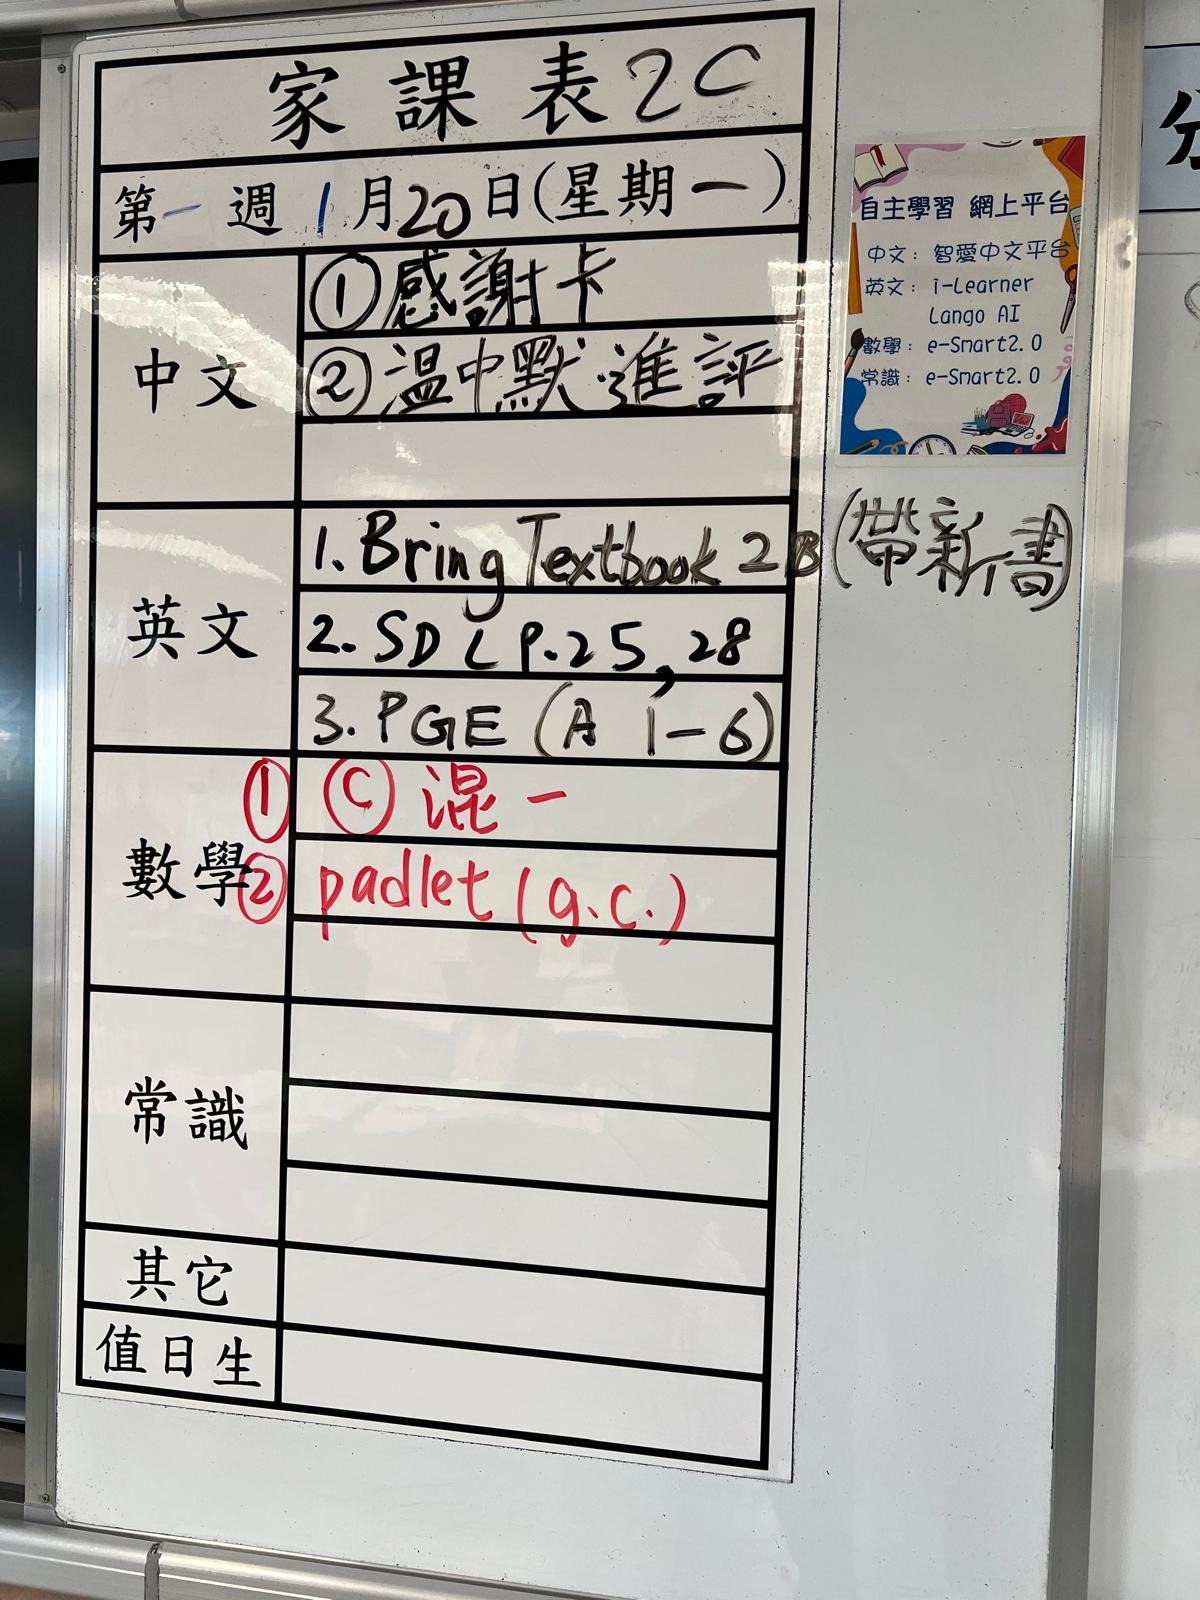 家課表 2C
第一週 1月20日(星期一)
中文
①感謝卡
②溫中默、進評
英文
1. Bring Textbook 2B (帶新書)
2. SDL P.25, 28
3. PGE (A 1-6)
數學
① Ⓒ 混一
② padlet (g.c.)
常識
其它
值日生
自主學習 網上平台
中文：智愛中文平台
英文：i-Learner
Lango AI
數學：e-Smart2.0
常識：e-Smart2.0